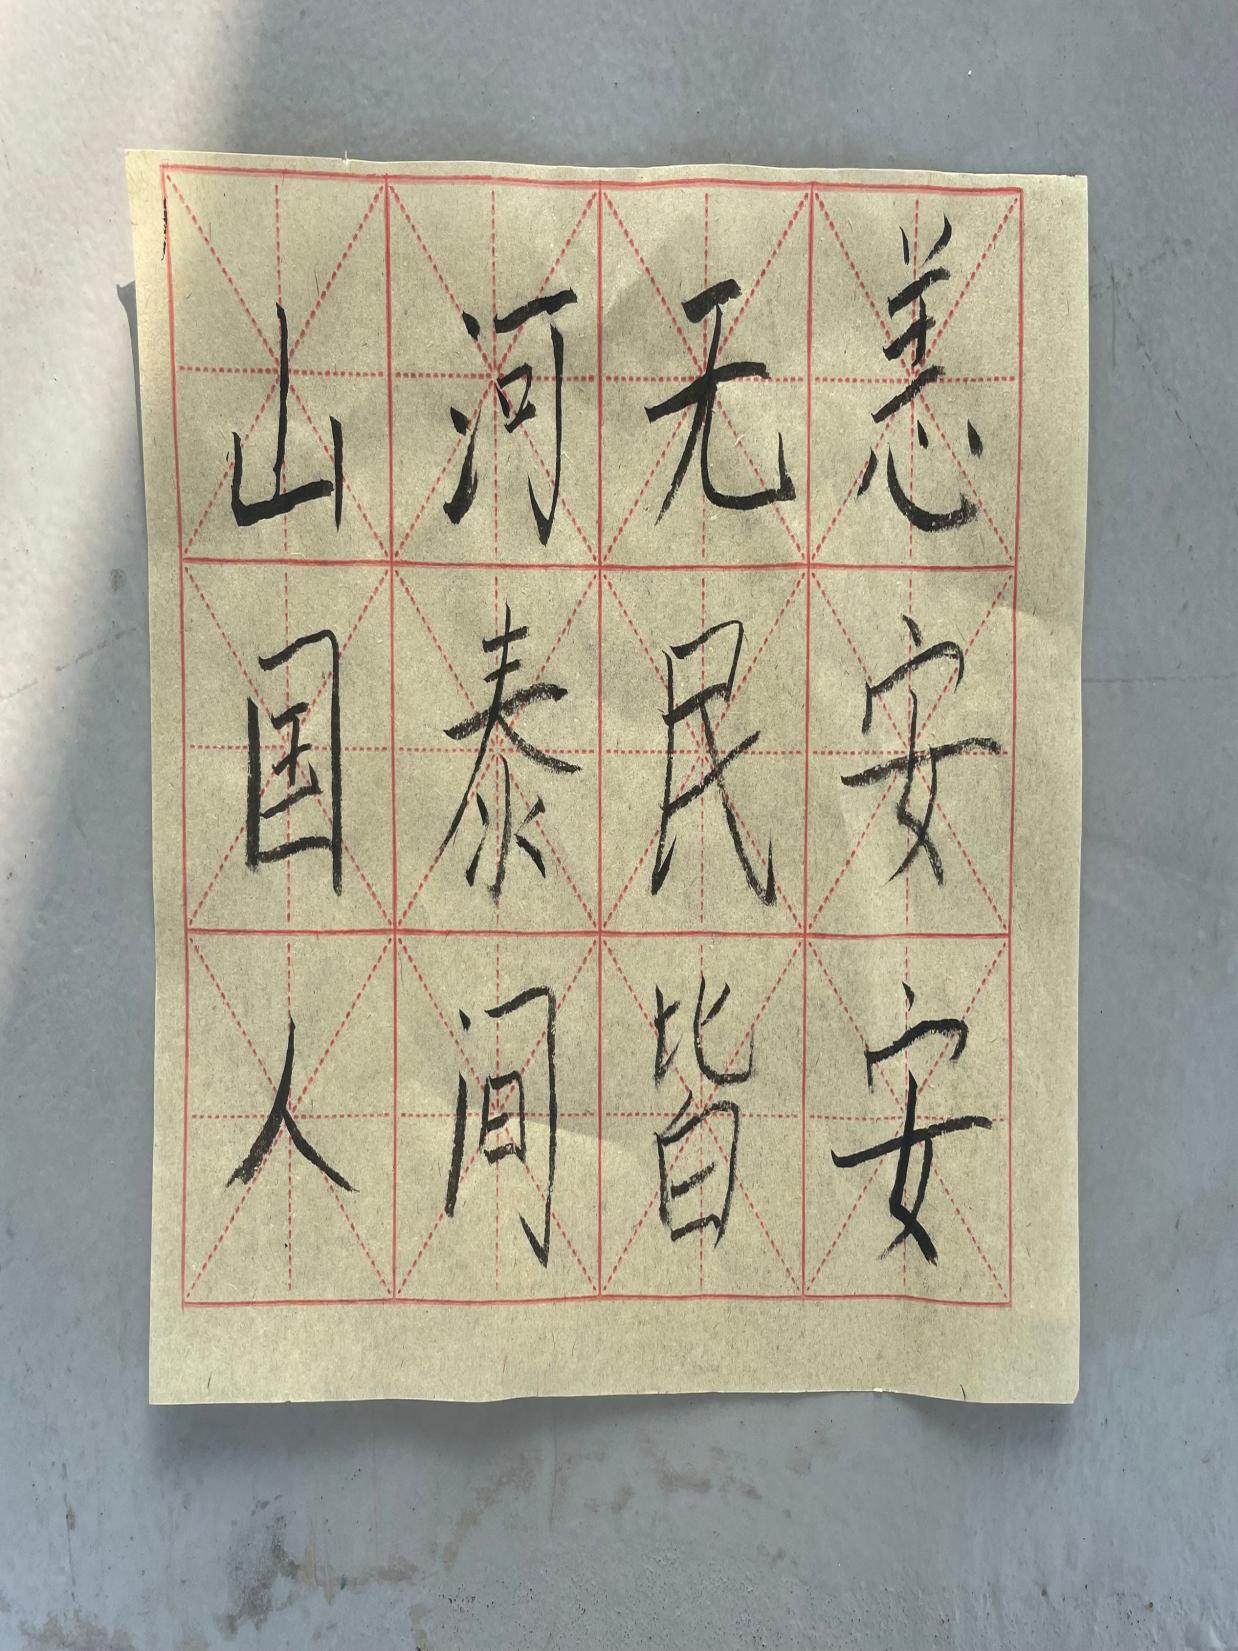 山河无恙
国泰民安
人间皆安